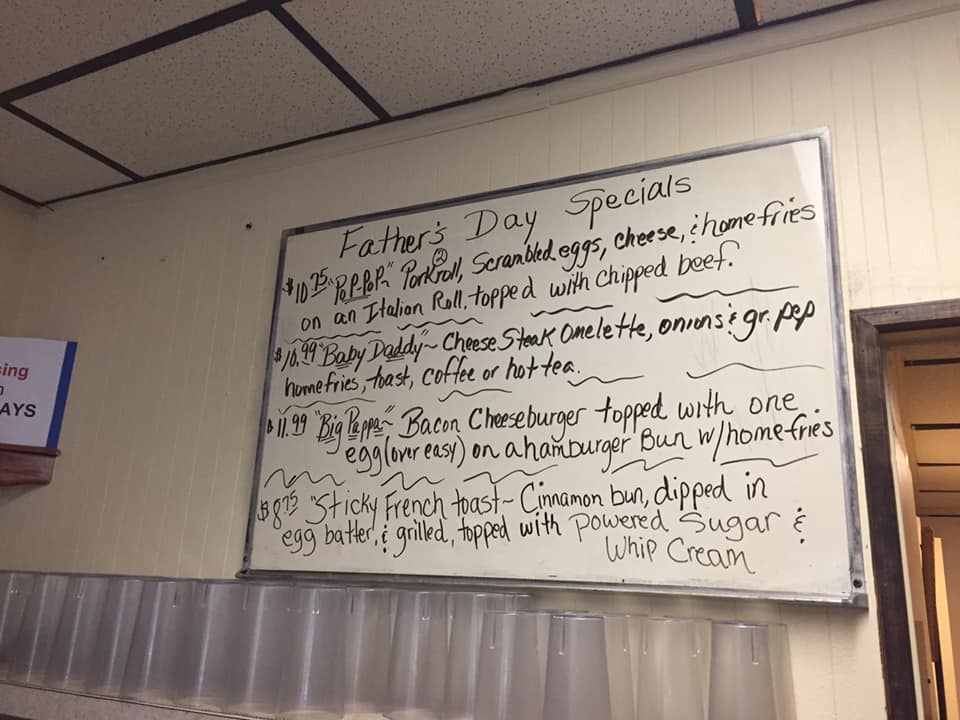 Father's Day Specials
$10.75 "Pop-Pop"~ Porkroll, Scrambled eggs, cheese, & homefries
on an Italian Roll, topped with chipped beef.
$10.99 "Baby Daddy"~ Cheese Steak Omelette, onions & gr. pep
homefries, toast, coffee or hot tea.
$11.99 "Big Pappa"~ Bacon Cheeseburger topped with one
egg (over easy) on a hamburger Bun w/homefries
$8.75 "Sticky French toast~ Cinnamon bun, dipped in
egg batter, & grilled, topped with Powered Sugar &
Whip Cream
ing
AYS